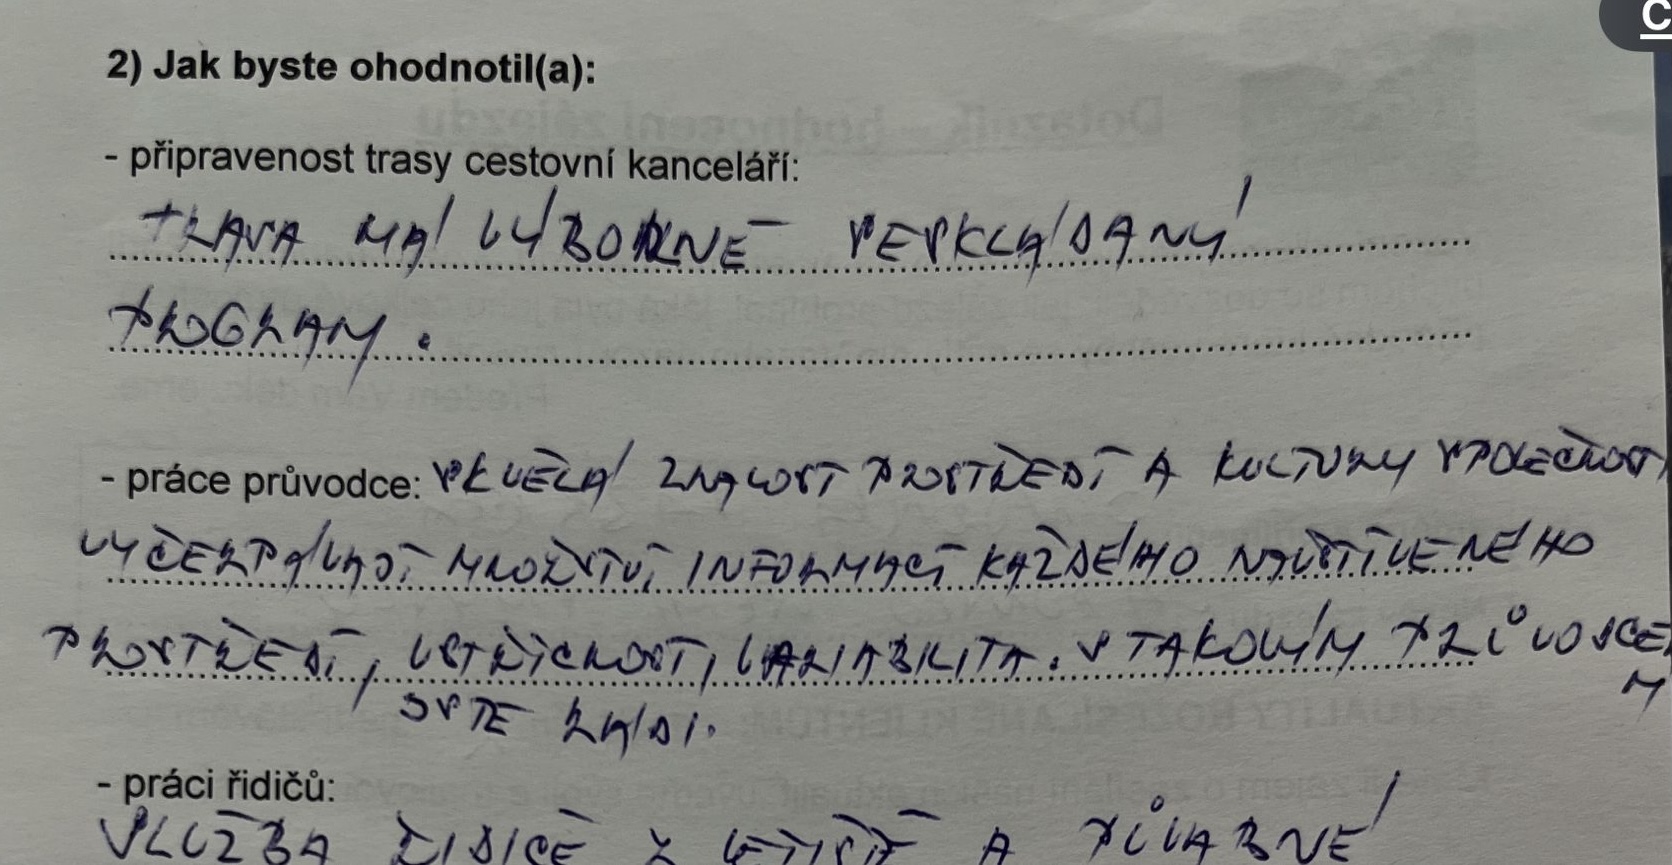 C
2) Jak byste ohodnotil(a):
- připravenost trasy cestovní kanceláří:
TRASA MÁ VÝBORNĚ POSKLÁDANÝ
PROGRAM.
- práce průvodce: SKVĚLÁ ZNALOST PROSTŘEDÍ A KULTURY SPOLEČNOSTI,
VYČERPÁVAJÍ MNOŽSTVÍ INFORMACÍ KAŽDÉHO NAVŠTÍVENÉHO
PROSTŘEDÍ, VSTŘÍCNOST, VARIABILITA. S TAKOVÝM PRŮVODCEM
JSTE RÁDI.
- práci řidičů:
SLUŽBA ŘIDIČE Z LETIŠTĚ A PŮVABNÉ